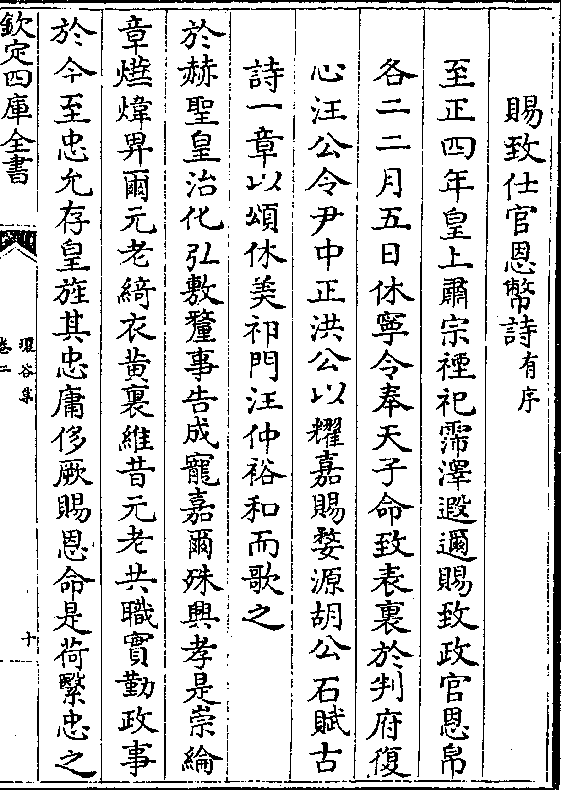 賜致仕官恩幣詩有序
至正四年皇上肅宗禋祀霈澤遐邇賜致政官恩帛
各二二月五日休寧令奉天子命致表裏於判府復
心汪公令尹中正洪公以耀嘉賜婺源胡公石賦古
詩一章以頌休美祁門汪仲裕和而歌之
於赫聖皇治化弘敷釐事告成寵嘉爾殊興孝是崇綸
章爀煒畀爾元老綺衣黃裏維昔元老共職實勤政事
於今至忠允存皇旌其忠庸侈厥賜恩命是荷繫忠之
欽定四庫全書
環谷集
卷二
十